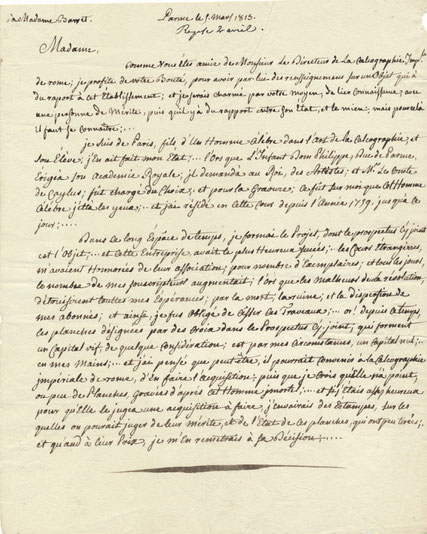 à Madame Barret.
Parme le 5. Mars 1813.
Reçu le 2 avril.
Madame,
Comme vous êtes amie de Monsieur Le Directeur de La Calcographie Imp.le
de rome; je profite de votre Bonté, pour avoir par lui des renseignemens sur un Objet qui à
du raport à cet établissement; et je serais charmé par votre moyen, de lier connaissance, avec
une personne de Mérite, puis qu'il y à du rapport entre son état, et le mien; mais pour cela
il faut se connaître;...
je suis de Paris, fils, d'un homme célèbre dans l'art de la Calcographie; et
son Eleve; j'En ait fait mon état;... l'ors que L'Infant Dom Philippe, Duc de Parme,
Erigea son academie Royale; il demanda au Roi, des artistes; et M.r Le Comte
de Cayles; fût chargé du Choix; et pour la Gravure; ce fût sur moi que cet homme
célèbre jetta les yeux;... et j'ai résidé en cette Cour depuis l'année 1759. jusqu'à ce
jour;....
Dans ce long Espace de temps, je formai le Projet, dont le prospectus Cy joint
est l'Objet;... et cette Entreprise, avait le plus heureux succés;... les Cours étrangères,
m'avaient honorées de leur association; pour nombre d'Exemplaires; et tous les jours,
le nombre de mes souscripteurs augmentait; l'ors que les malheurs de la révolution,
détruisirent toutes mes Espérances; par la mort, la ruine, et la dispersion de
mes abonnés; et ainsi, je fus obligé de cesser ces Travaux;... or! depuis ce temps,
les planches désignées par des Croix dans le Prospectus Cy-joint; qui forment
un Capital vif, de quelque considération; est par mes circonstances, un Capital nul;...
en mes Mains;... et j'ai pensé que peut être, il pourrait convenir à la Calcographie
impériale de rome, d'En faire l'acquisition; puis que je crois qu'elle n'a point,
ou peu de Planches, Gravées d'après cet homme immortel;... et si j'étais assez heureux
pour qu'Elle le jugea une acquisition à faire, j'enverrais des Estampes, sur les
quelles on pourait juger de leur mérite, et de l'Etat de ces planches, qui ont peu tirés;..
et quand à leur Prix, je m'En remettrais à sa Décision;....